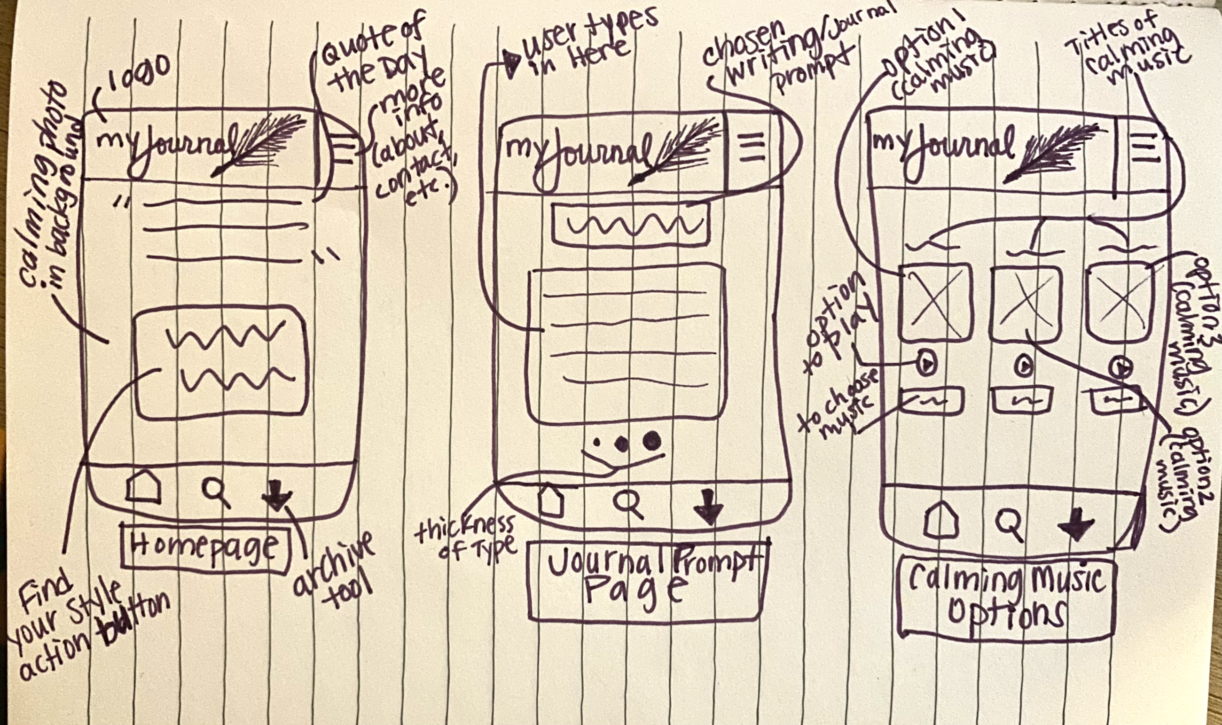 logo
calming photo
in background
Quote of
the Day
more
info
(about,
contact,
etc.)
my Journal
"
"
Homepage
Find
your style
action button
archive
tool
user types
in Here
chosen
writing/journal
prompt
my Journal
thickness
of Type
Journal Prompt
Page
option 1
(calming
music)
Titles of
calming
music
my Journal
option
to play
to choose
music
option 3
(calming
music)
option 2
(calming
music)
Calming Music
Options